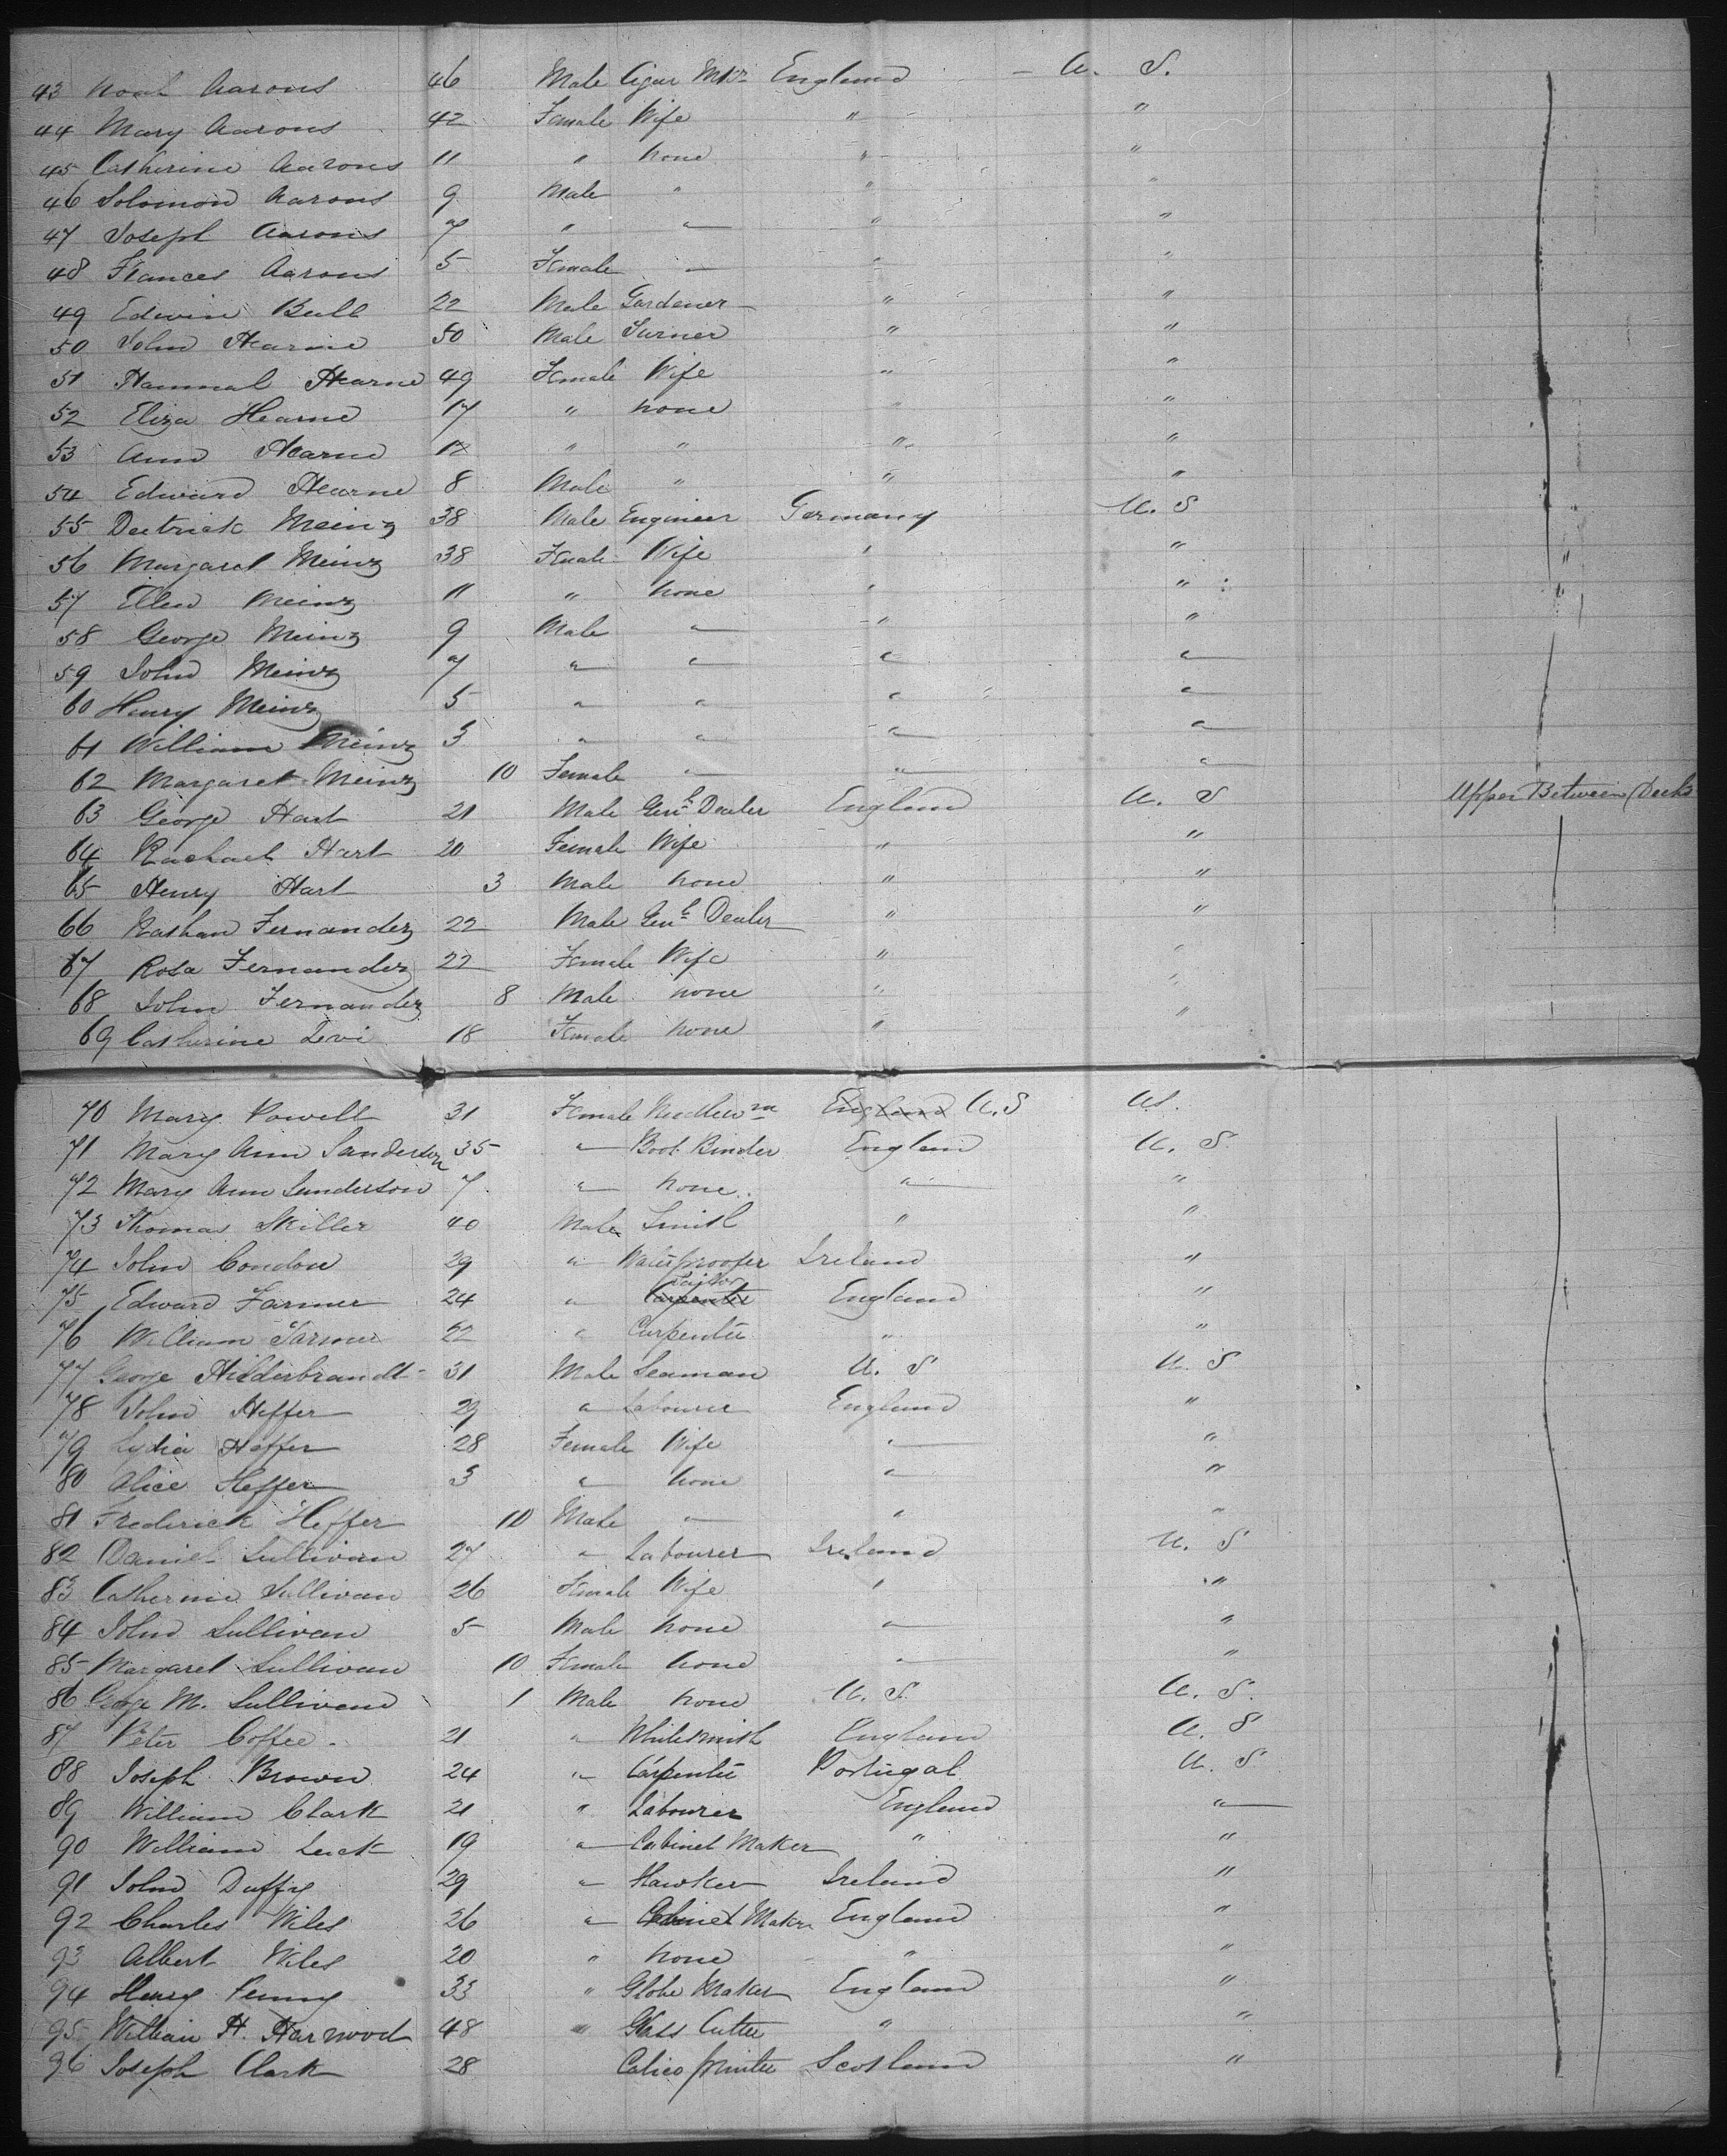 43 Noah Aarons 46 Male Cigar Mkr England — U. S.
44 Mary Aarons 42 Female Wife " "
45 Catherine Aarons 11 " none " "
46 Solomon Aarons 9 Male " " "
47 Joseph Aarons 7 " " " "
48 Frances Aarons 5 Female — " "
49 Edwin Bull 22 Male Gardener " "
50 John Hearne 50 Male Turner " "
51 Hannah Hearne 49 Female Wife " "
52 Eliza Hearne 17 " none " "
53 Ann Hearne " " " "
54 Edward Hearne 8 Male " " "
55 Deetrick Meinz 38 Male Engineer Germany U. S
56 Margaret Meinz 38 Female Wife " "
57 Ellen Meinz 11 " none " "
58 George Meinz 9 Male " " "
59 John Meinz 7 " " " "
60 Henry Meinz 5 " " " "
61 William Meinz 3 " " " "
62 Margaret Meinz 10 Female " " "
63 George Hart 21 Male Genl Dealer England U. S Upper Between Decks
64 Rachael Hart 20 Female Wife " "
65 Henry Hart 3 Male none " "
66 Nathan Fernandez 22 Male Genl Dealer " "
67 Rosa Fernandez 22 Female Wife " "
68 John Fernandez 8 Male none " "
69 Catherine Levi 18 Female none " "
70 Mary Powell 31 Female Needlewn England U.S US.
71 Mary Ann Sanderson 35 " Boot Binder England U. S.
72 Mary Ann Sanderson 7 " none " "
73 Thomas Skiller 40 Male Smith " "
74 John Condon 29 " Waterproofer Ireland "
75 Edward Farmer 24 " Carpenter Tailor England "
76 William Farmer 22 " Carpenter " "
77 George Hilderbrandt 31 Male Seaman U. S U. S
78 John Heffer 29 " Labourer England "
79 Lydia Heffer 28 Female Wife " "
80 Alice Heffer 3 " none " "
81 Frederick Heffer 10 Male " " "
82 Daniel Sullivan 27 " Labourer Ireland U. S
83 Catherine Sullivan 26 Female Wife " "
84 John Sullivan 5 Male none " "
85 Margaret Sullivan 10 Female none " "
86 George M. Sullivan 1 Male none U. S. U. S.
87 Peter Coffee 21 " Whitesmith England U. S
88 Joseph Brown 24 " Carpenter Portugal U. S
89 William Clark 21 " Labourer England "
90 William Luck 19 " Cabinet Maker " "
91 John Duffy 29 " Hawker Ireland "
92 Charles Wiles 26 " Cabinet Maker England "
93 Albert Wiles 20 " none " "
94 Henry Penny 33 " Globe Maker England "
95 William H. Harwood 48 " Glass Cutter " "
96 Joseph Clark 28 Calico printer Scotland "